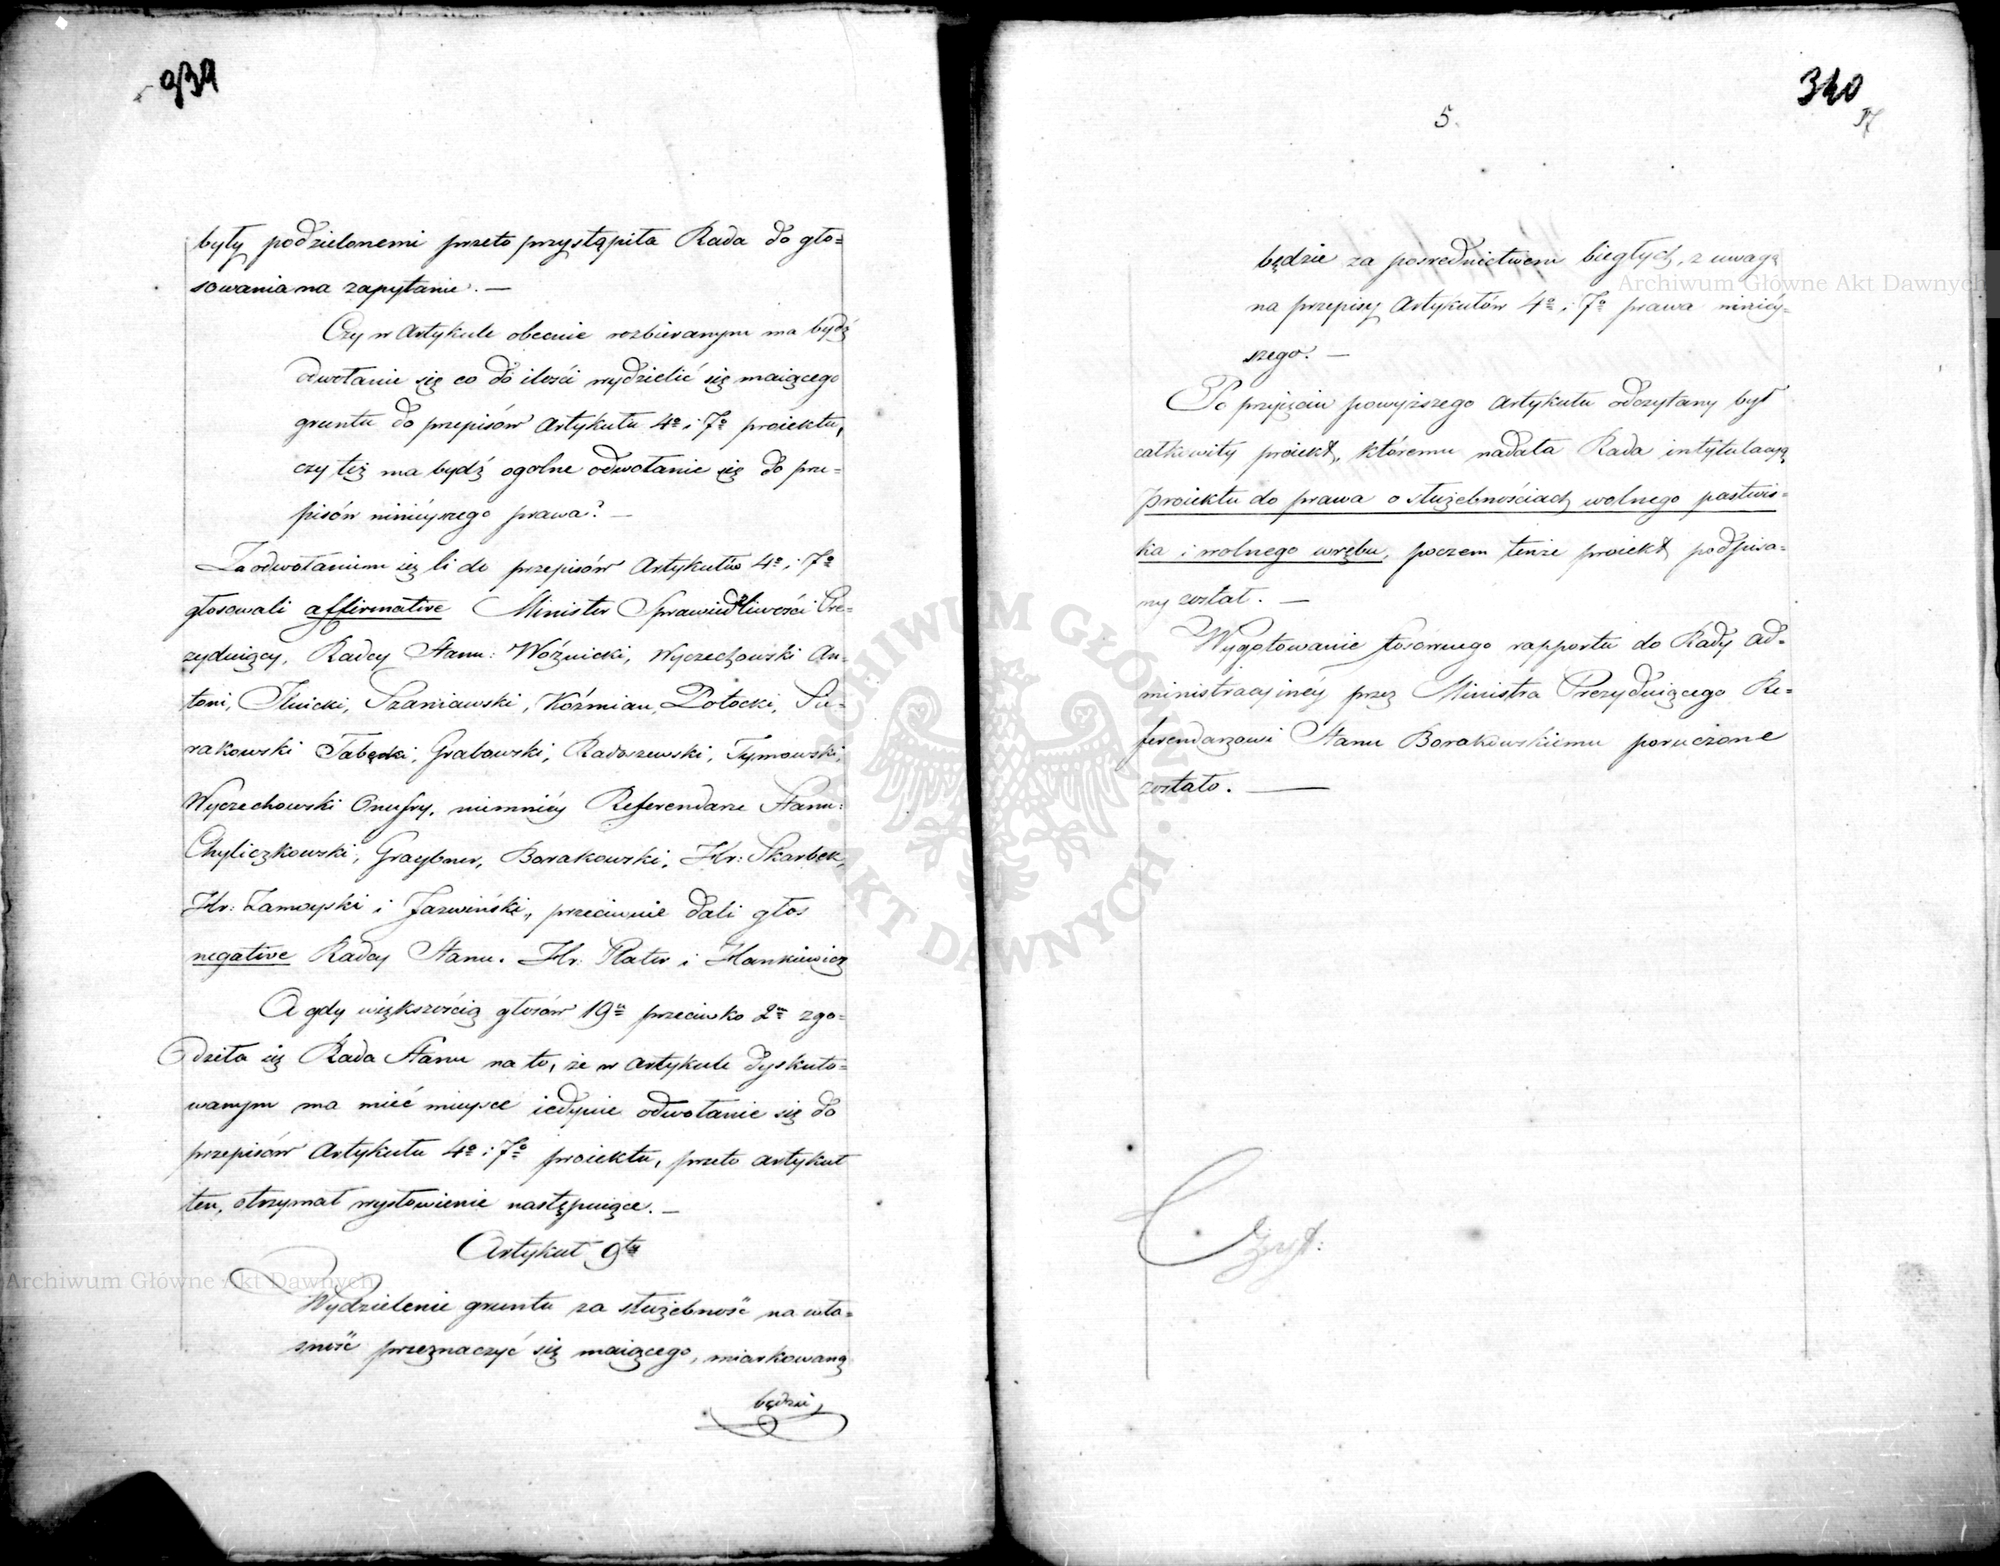 były podzielonemi przeto przystąpiła Rada do gło=
sowania na zapytanie. —
Czy w Artykule obecnie rozbieranym ma bydź
odwołanie się co do ilości wydzielić się maiącego
gruntu do przepisów Artykułu 4º i 7º proiektu,
czy też ma bydź ogolne odwołanie się do prze=
pisów ninieyszego prawa? —
Za odwołaniem się li do przepisów Artykułów 4º i 7º
głosowali affirmative Minister Sprawiedliwości Pre=
zyduiący, Radcy Stanu: Woźnicki, Wyczechowski An=
toni, Łuicki, Szaniawski, Koźmian, Potocki, Su=
rakowski Tabęcki, Grabowski, Radoszewski, Tymowski,
Wyczechowski Onufry, niemniey Referendarze Stanu:
Chyliczkowski, Graybner, Borakowski, Hr: Skarbek,
Hr: Zamoyski i Jazwiński, przeciwnie dali głos
negative Radcy Stanu. Hr: Plater i Hankiewicz
A gdy większością głosów 19u przeciwko 2m zgo=
dziła się Rada Stanu na to, że w Artykule dyskuto=
wanym ma mieć mieysce iedynie odwołanie się do
przepisów Artykułu 4º i 7º proiektu, przeto Artykuł
ten, otrzymał wysłowienie następuiące. —
Artykuł 9ty
Wydzielenie gruntu za służebność na wła=
sność przeznaczyć się maiącego, miarkowaną
będzie
340
5.
będzie za posrednictwem biegłych, z uwagą
na przepisy Artykułów 4º i 7º prawa niniey=
szego. —
Po przyięciu powyższego Artykułu odczytany był
całkowity proiekt, któremu nadała Rada intytulacyą
Proiektu do prawa o służebnościach wolnego pastwis=
ka i wolnego wrębu, poczem tenże proiekt podpisa=
ny został. —
Wygotowanie stosownego rapportu do Rady Ad=
ministracyiney przez Ministra Prezyduiącego Re=
ferendarzowi Stanu Borakowskiemu poruczone
zostało. —
Archiwum Główne Akt Dawnych
Archiwum Główne Akt Dawnych
ARCHIWUM GŁÓWNE · AKT DAWNYCH ·